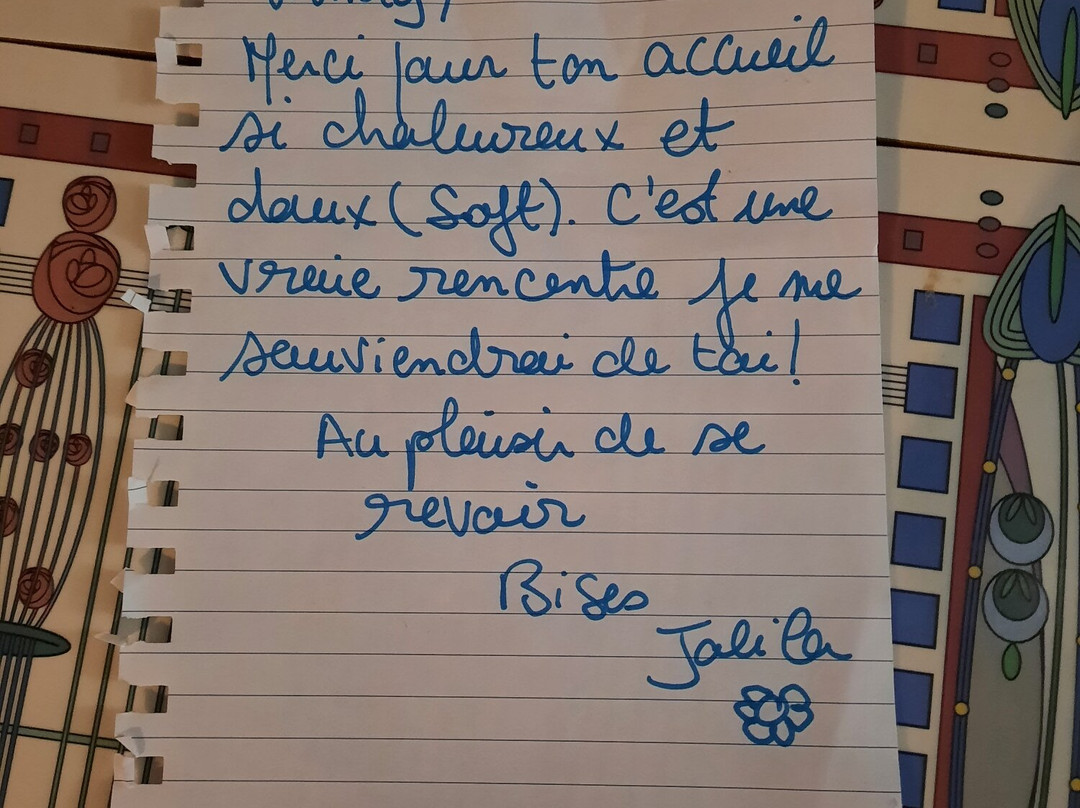 Merci pour ton accueil
si chaleureux et
doux (Soft). C'est une
vraie rencontre je me
souviendrai de toi!
Au plaisir de se
revoir
Bises
Jalila